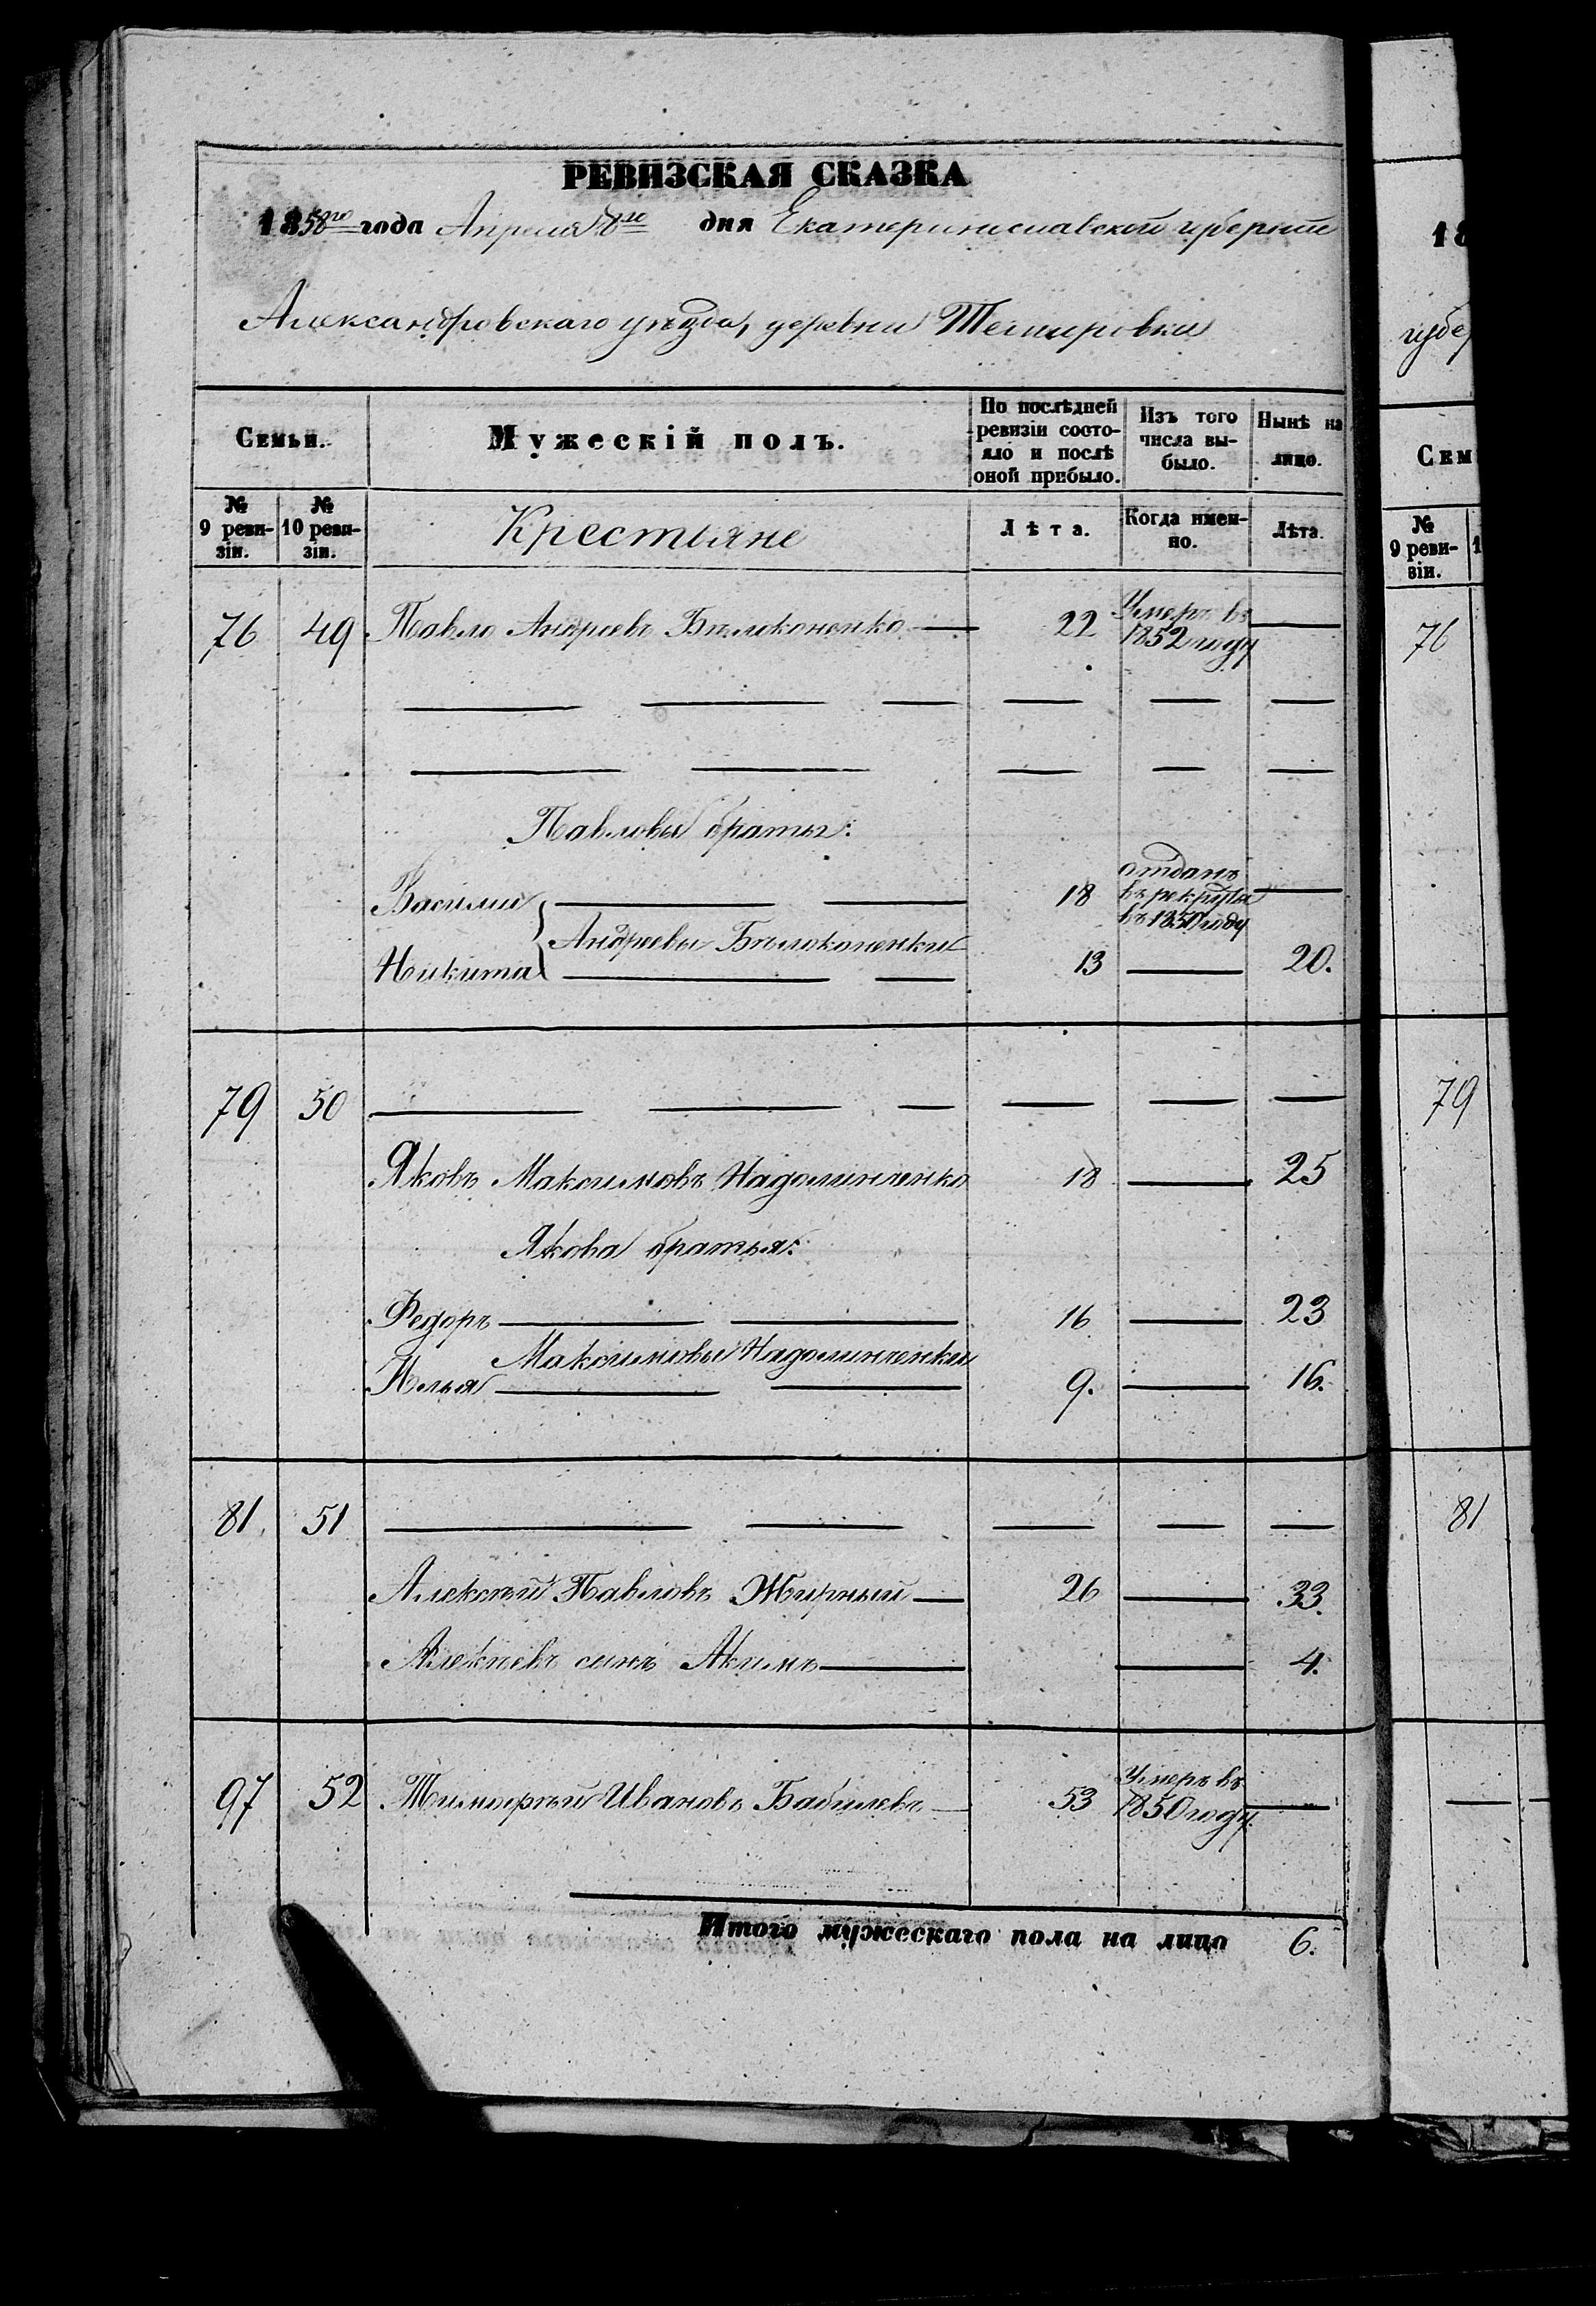 РЕВИЗСКАЯ СКАЗКА
1858го года Апреля 8го дня Екатеринославской губернии
Александровскаго уѣзда, деревни Темировки
Семьи. Мужескій полъ. По послѣдней ревизіи состояло и послѣ оной прибыло. Изъ того числа выбыло. Нынѣ на лицо.
№ 9 ревизіи. № 10 ревизіи. Крестьяне Лѣта. Когда именно. Лѣта.
76 49 Павло Андреевъ Бѣлоконенко 22 Умеръ въ 1852 году
Павловы братья:
Василий 18 отданъ въ рекруты въ 1850 году
Андреевы Бѣлоконенки
Никита 13 20.
79 50
Яковъ Максимовъ Надолинченко 18 25
Якова братья:
Федоръ 16 23
Максимовы Надолинченки
Илья 9. 16.
81. 51
Алексѣй Павловъ Жирный 26 33.
Алексѣевъ сынъ Акимъ 4.
97 52 Тимофѣй Ивановъ 53 Умеръ въ 1850 году.
Итого мужескаго пола на лицо 6.
18
губер
Сем
№ 9 ревизіи. 1
76
79
81